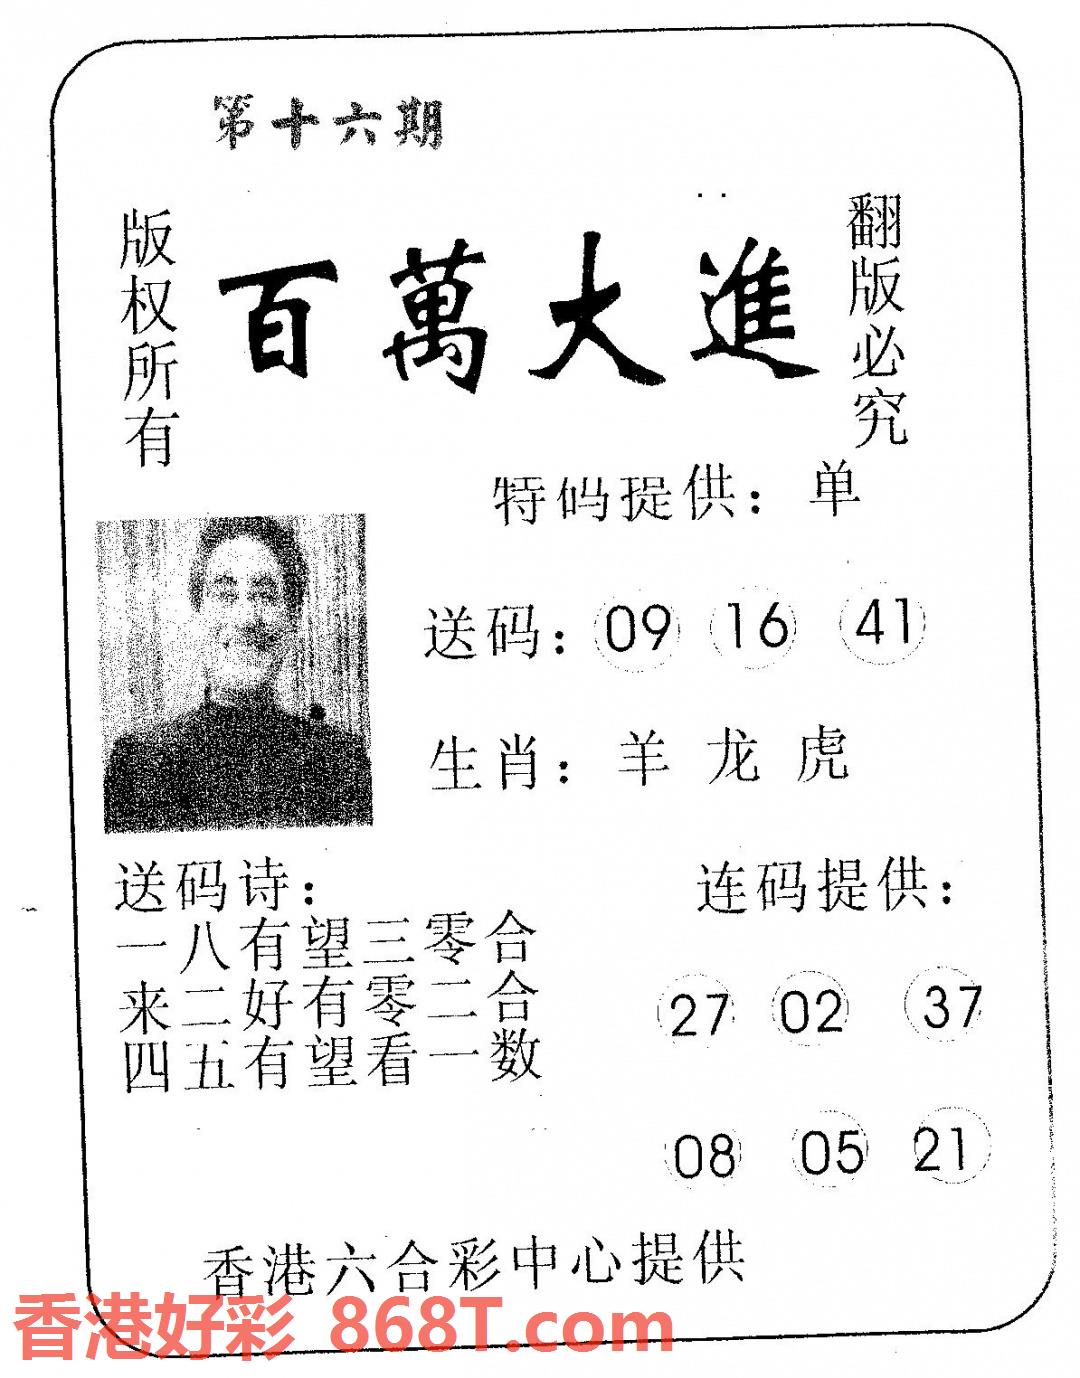 第十六期
版权所有
百萬大進
翻版必究
特码提供：单
送码：09 16 41
生肖：羊龙虎
送码诗：
一八有望三零合
来二好有零二合
四五有望看一数
连码提供：
27 02 37
08 05 21
香港六合彩中心提供
香港好彩 868T.com